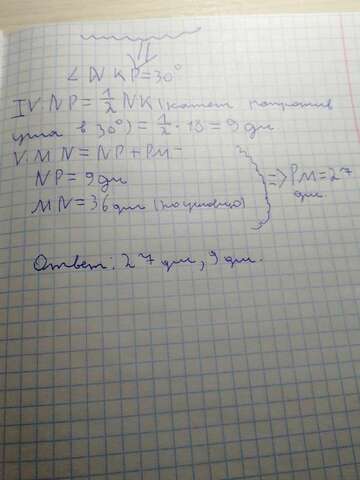 ∠ NKP=30°
IV. NP = 1/2 NK (катет напротив
угла в 30°) = 1/2 · 18 = 9 дм
V. MN = NP + PM
NP = 9 дм
MN = 36 дм (по условию)
=> PM = 27 дм.
Ответ: 27 дм, 9 дм.